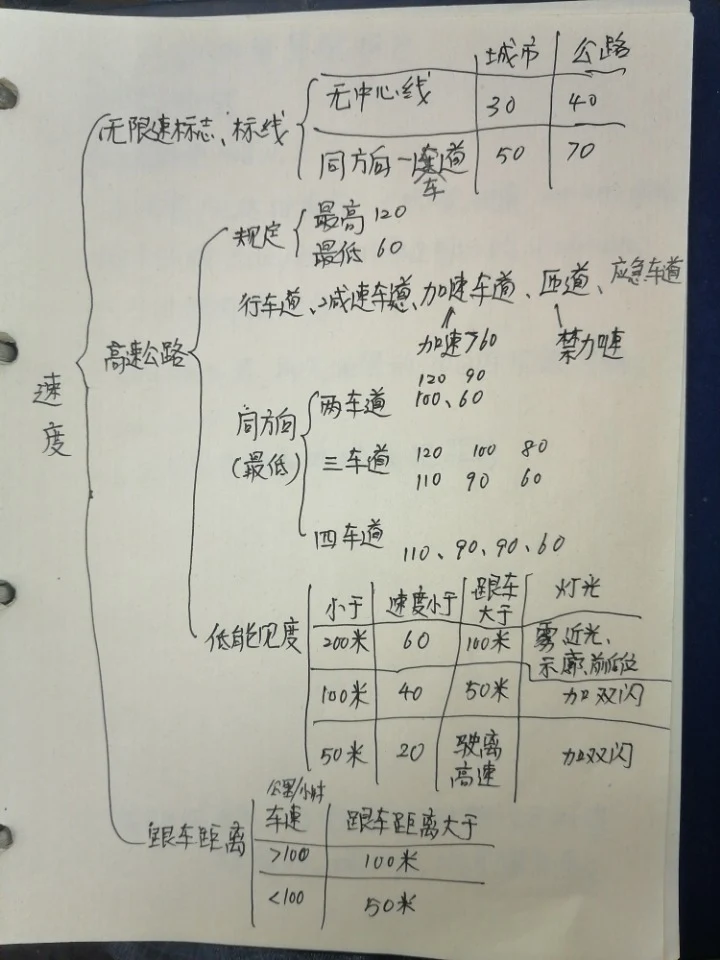 城市 公路
无中心线 30 40
无限速标志、标线
同方向一车道 50 70
规定
最高 120
最低 60
行车道、减速车道、加速车道、匝道、应急车道
加速>60 禁加速
高速公路
速度
120 90
两车道 100、60
同方向
(最低)
三车道 120 100 80
110 90 60
四车道 110、90、90、60
低能见度
小于 速度小于 跟车大于 灯光
200米 60 100米 雾、近光、
示廓、前后位
100米 40 50米 加双闪
50米 20 驶离高速 加双闪
跟车距离
公里/小时
车速 跟车距离大于
>100 100米
<100 50米